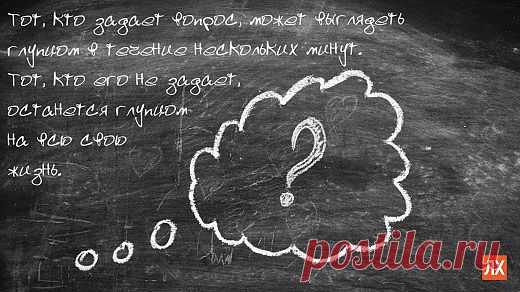 Тот, кто задает вопрос, может выглядеть
глупцом в течение нескольких минут.
Тот, кто его не задает,
останется глупцом
на всю свою
жизнь.
?
ЛХ
postila.ru